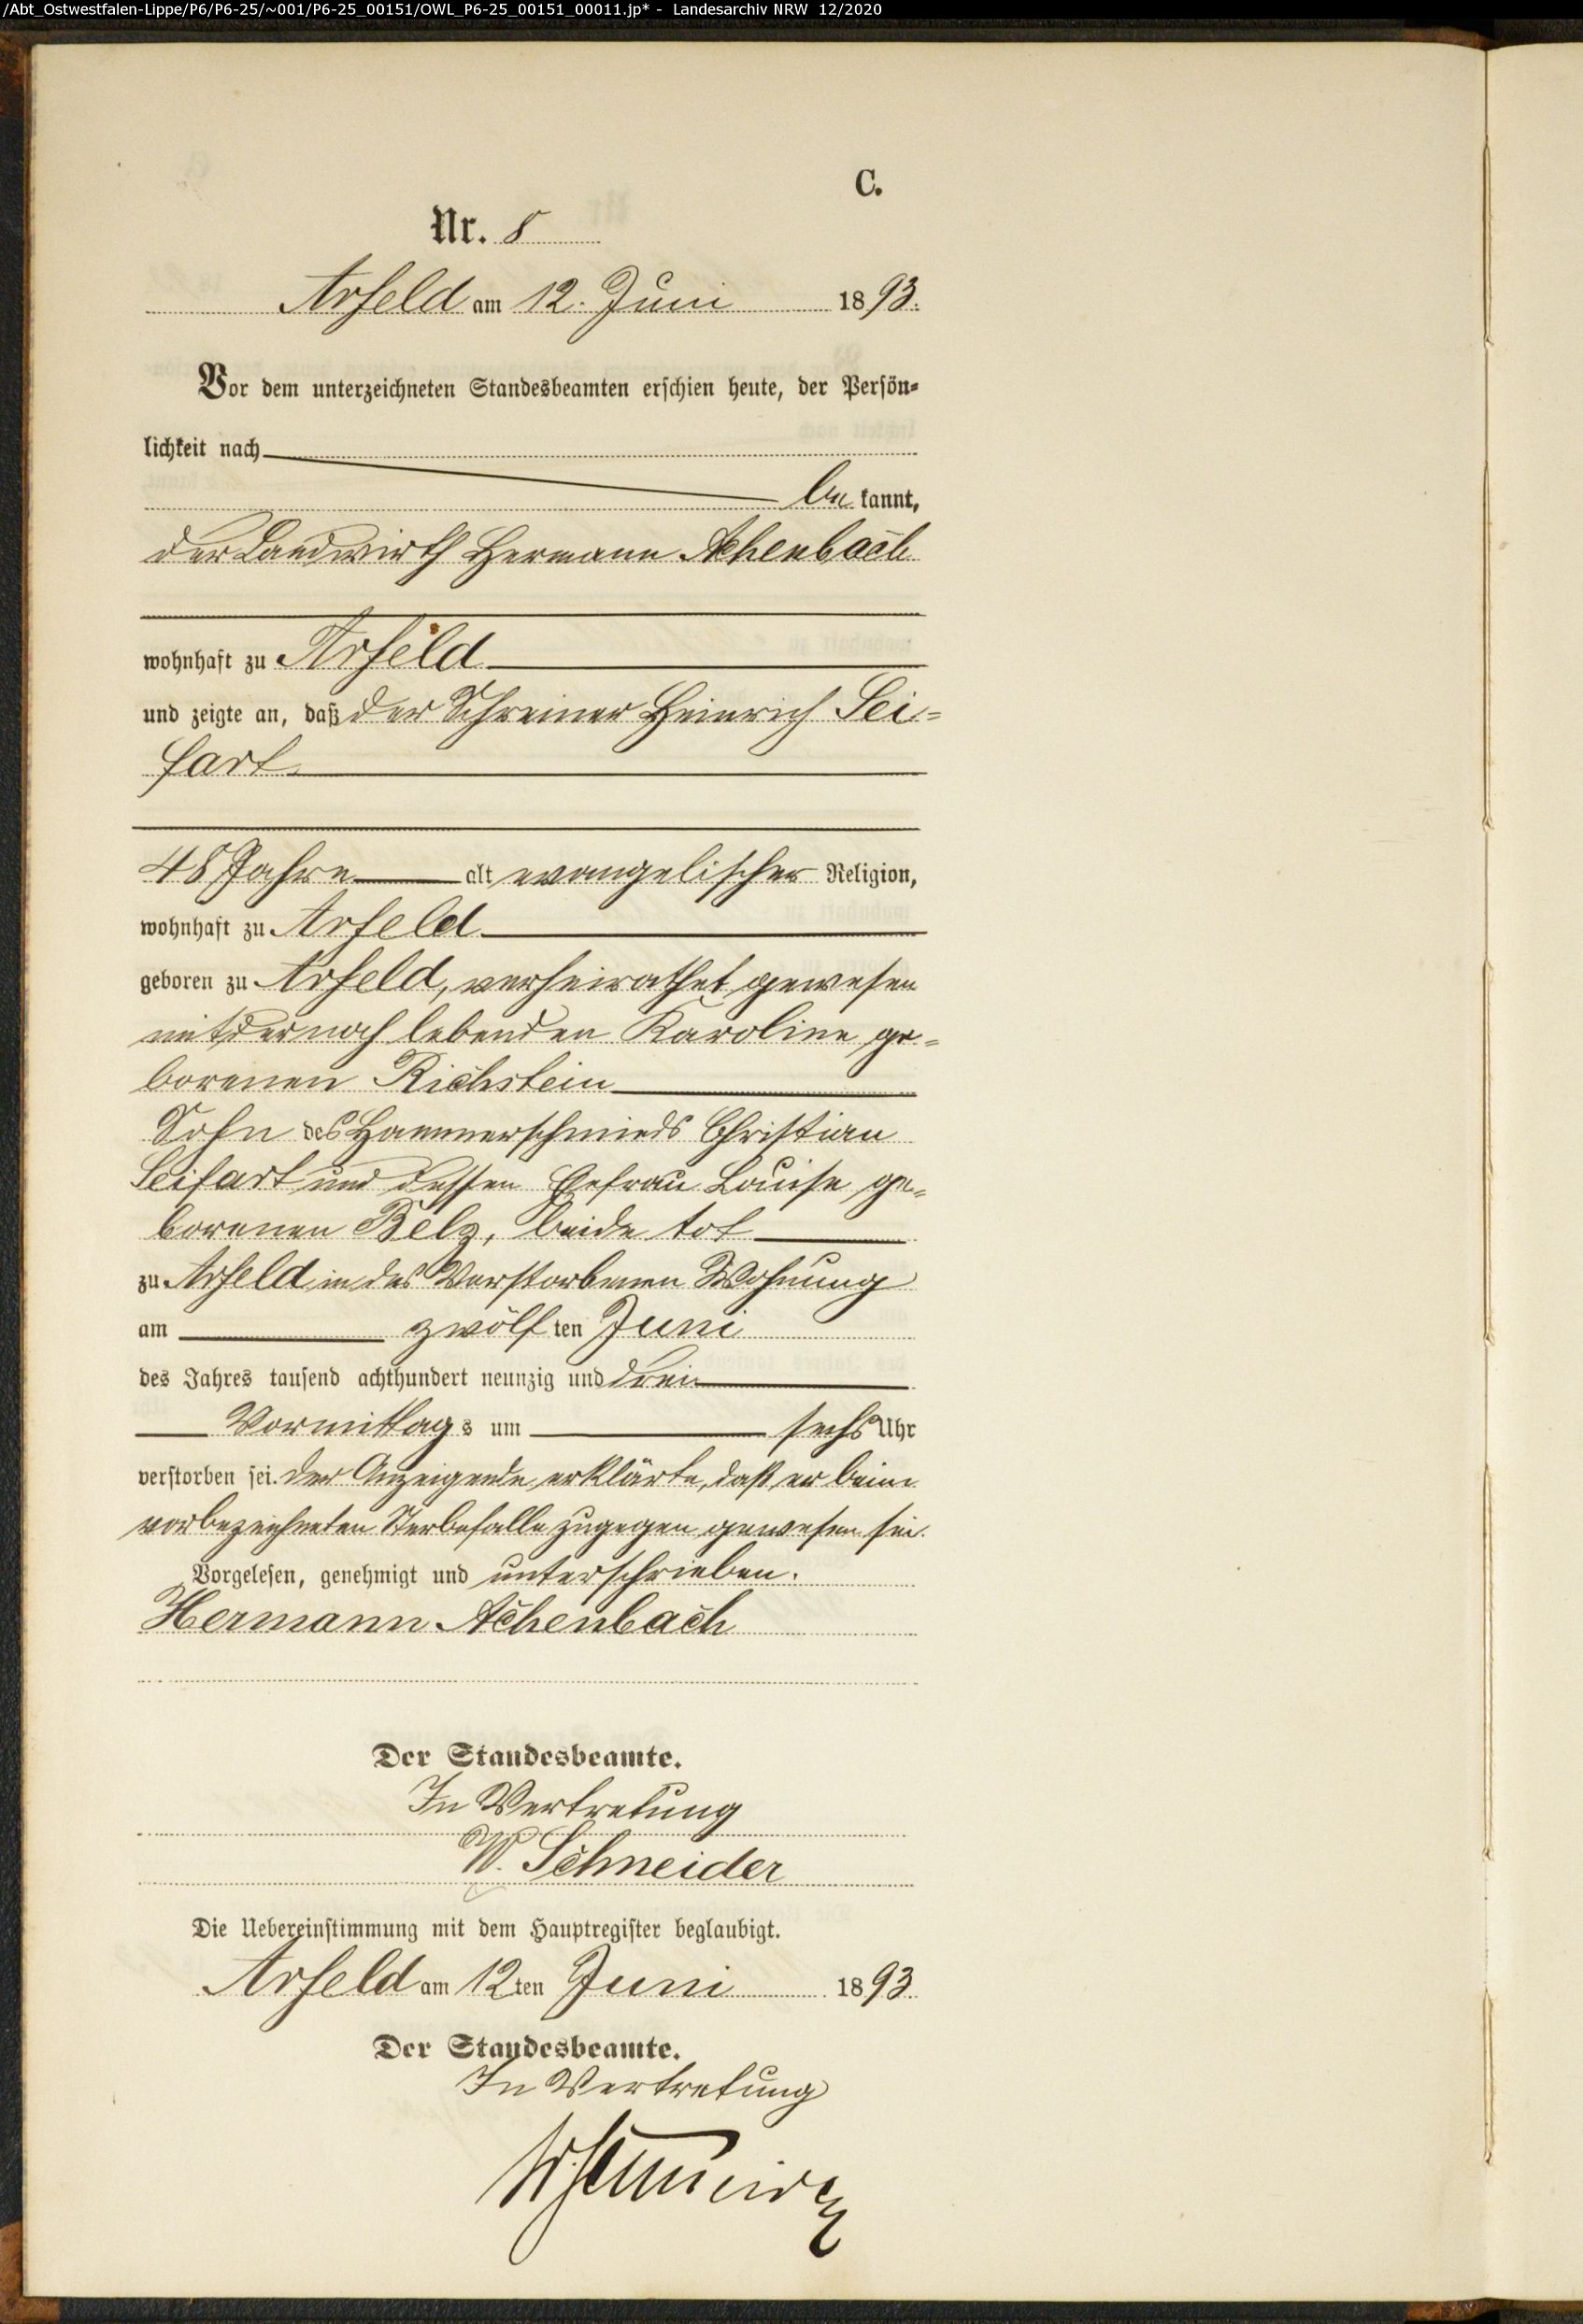 /Abt_Ostwestfalen-Lippe/P6/P6-25/~001/P6-25_00151/OWL_P6-25_00151_00011.jp* - Landesarchiv NRW 12/2020
C.
Nr. 8
Arfeld am 12. Juni 1893.
Vor dem unterzeichneten Standesbeamten erschien heute, der Persön-
lichkeit nach
be kannt,
der Landwirth Hermann Achenbach
wohnhaft zu Arfeld
und zeigte an, daß der Schreiner Heinrich Sei-
fart
48 Jahre alt evangelischer Religion,
wohnhaft zu Arfeld
geboren zu Arfeld, verheirathet gewesen
mit der noch lebenden Karoline ge-
borenen Richstein
Sohn des Hammerschmieds Christian
Seifart und dessen Ehefrau Louise ge-
borenen Belz, beide tot
zu Arfeld in des Verstorbenen Wohnung
am zwölf ten Juni
des Jahres tausend achthundert neunzig und drei
Vormittag s um sechs Uhr
verstorben sei. Der Anzeigende erklärte, daß er beim
vorbezeichneten Sterbefalle zugegen gewesen sei.
Vorgelesen, genehmigt und unterschrieben.
Hermann Achenbach
Der Standesbeamte.
In Vertretung
W. Schneider
Die Uebereinstimmung mit dem Hauptregister beglaubigt.
Arfeld am 12ten Juni 1893.
Der Standesbeamte.
In Vertretung
W. Schneider